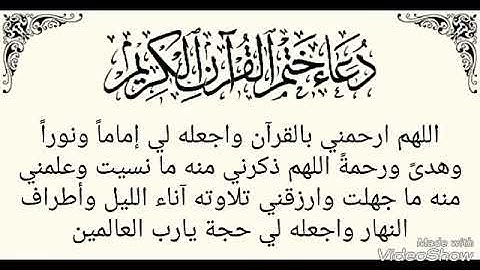 دُعَاءُ خَتْمِ الْقُرْآنِ الْكَرِيمِ
اللهم ارحمني بالقرآن واجعله لي إماماً ونوراً
وهدىً ورحمةً اللهم ذكرني منه ما نسيت وعلمني
منه ما جهلت وارزقني تلاوته آناء الليل وأطراف
النهار واجعله لي حجة يارب العالمين
Made with
VideoShow